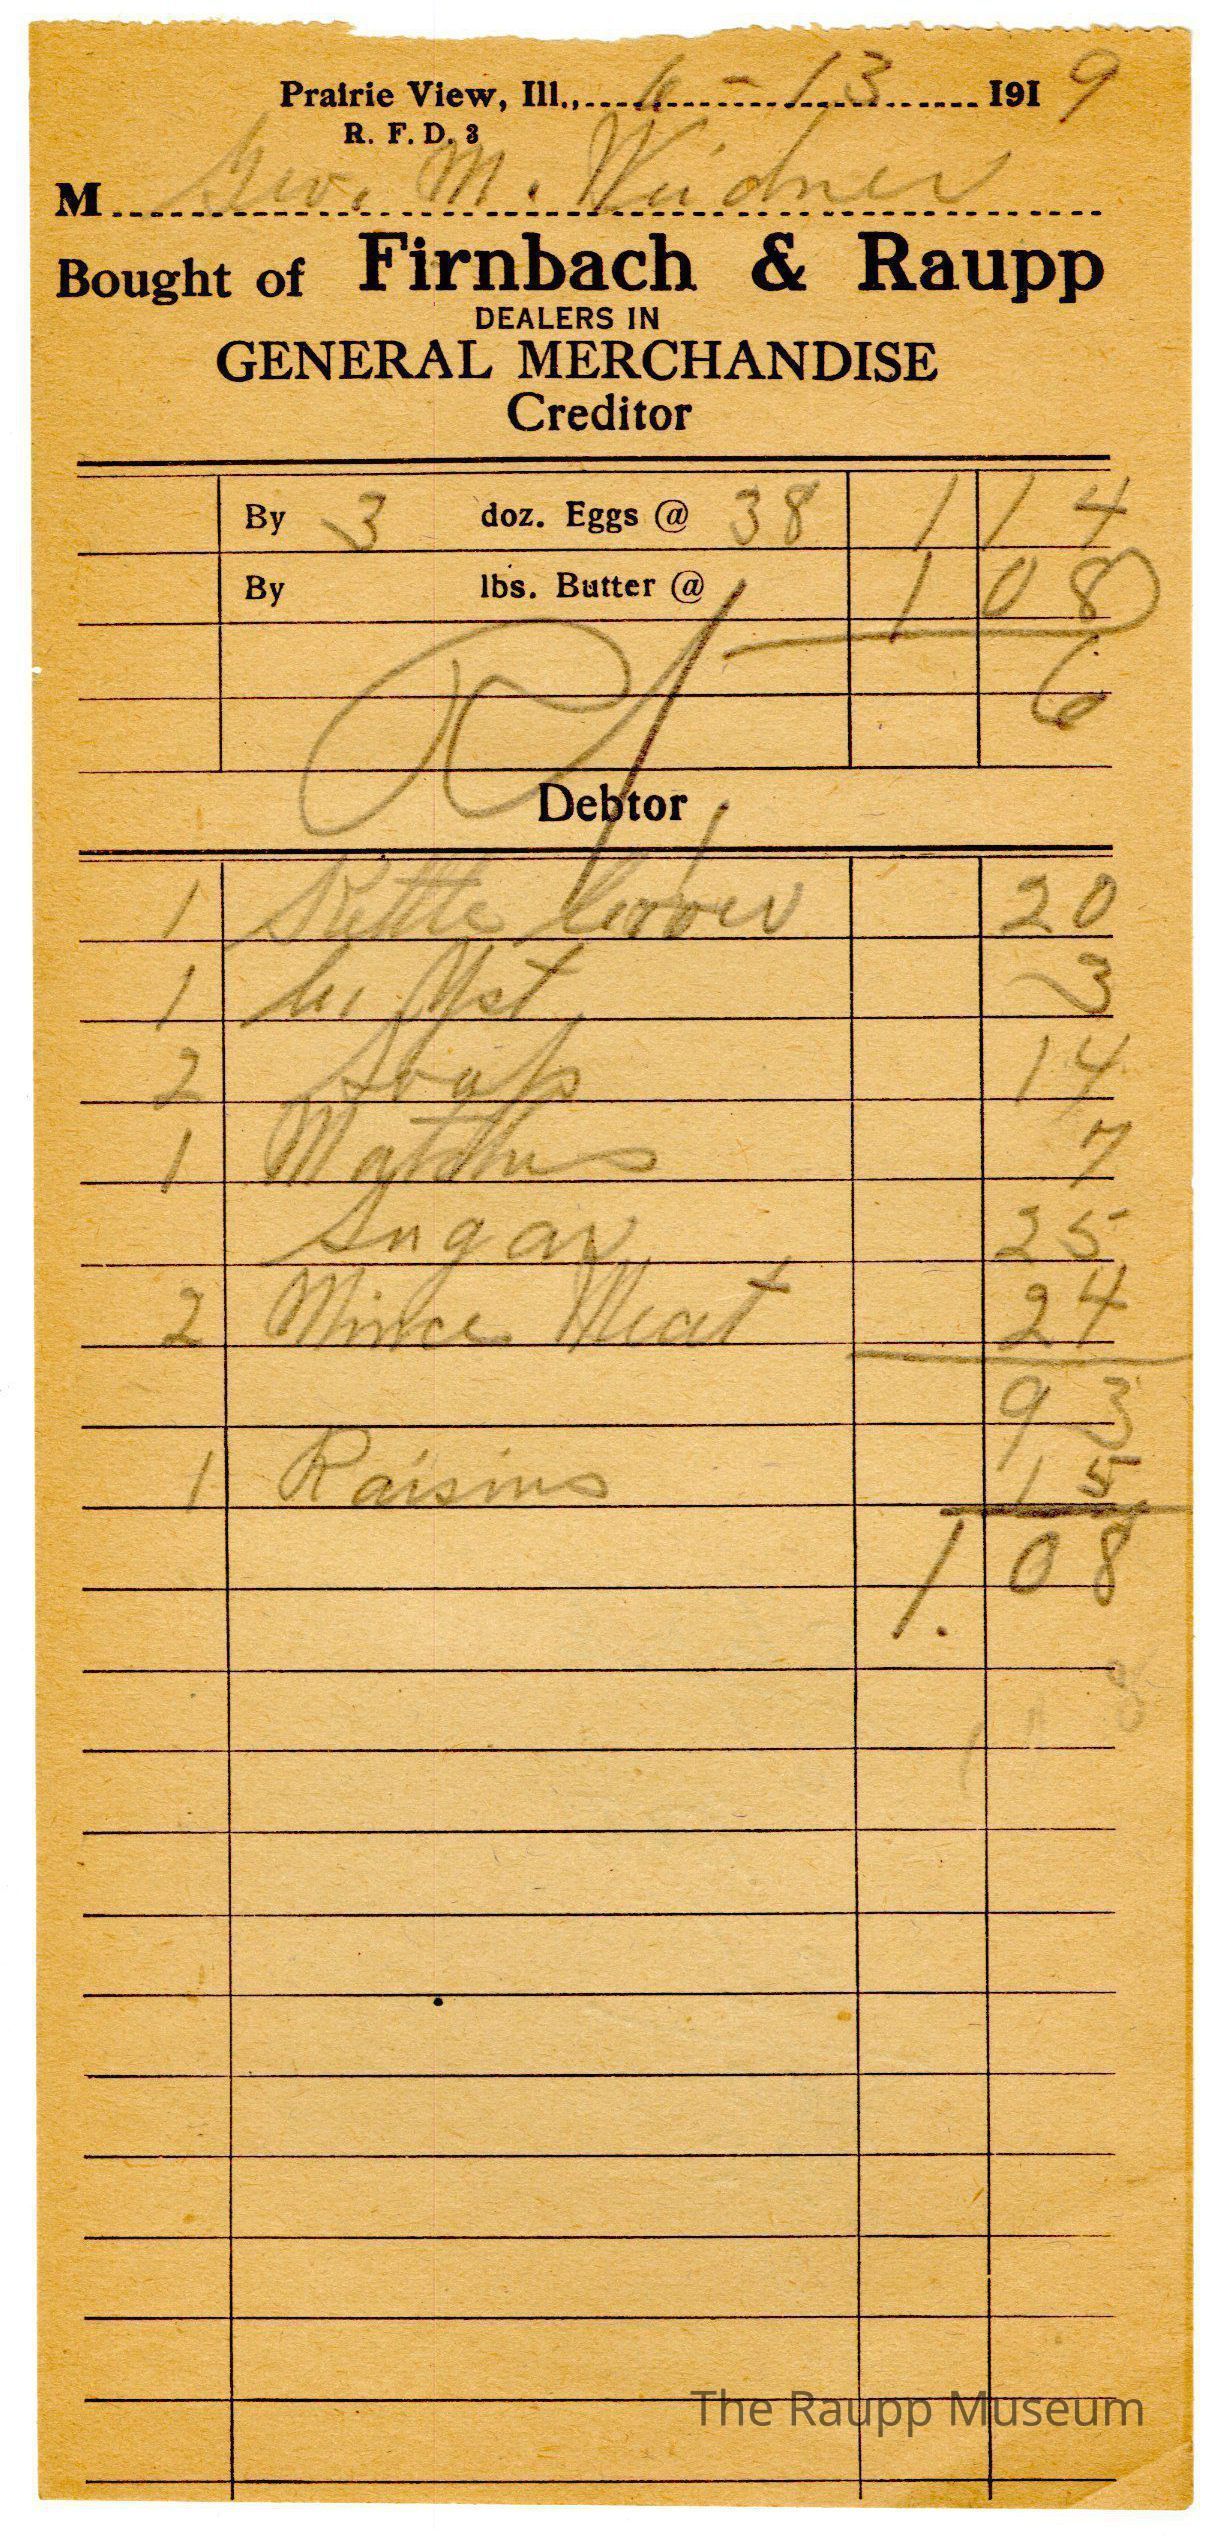 Prairie View, Ill., 6-13 1919
R. F. D. 3
M Geo. M. Weidner
Bought of Firnbach & Raupp
DEALERS IN
GENERAL MERCHANDISE
Creditor
By 3 doz. Eggs @ 38 1 14
By lbs. Butter @ 1 08
6
Debtor
1 Kettle Cover 20
1 Yst 3
2 Soap 14
1 Matches 7
Sugar 25
2 Mince Meat 24
93
1 Raisins 15
1. 08
The Raupp Museum